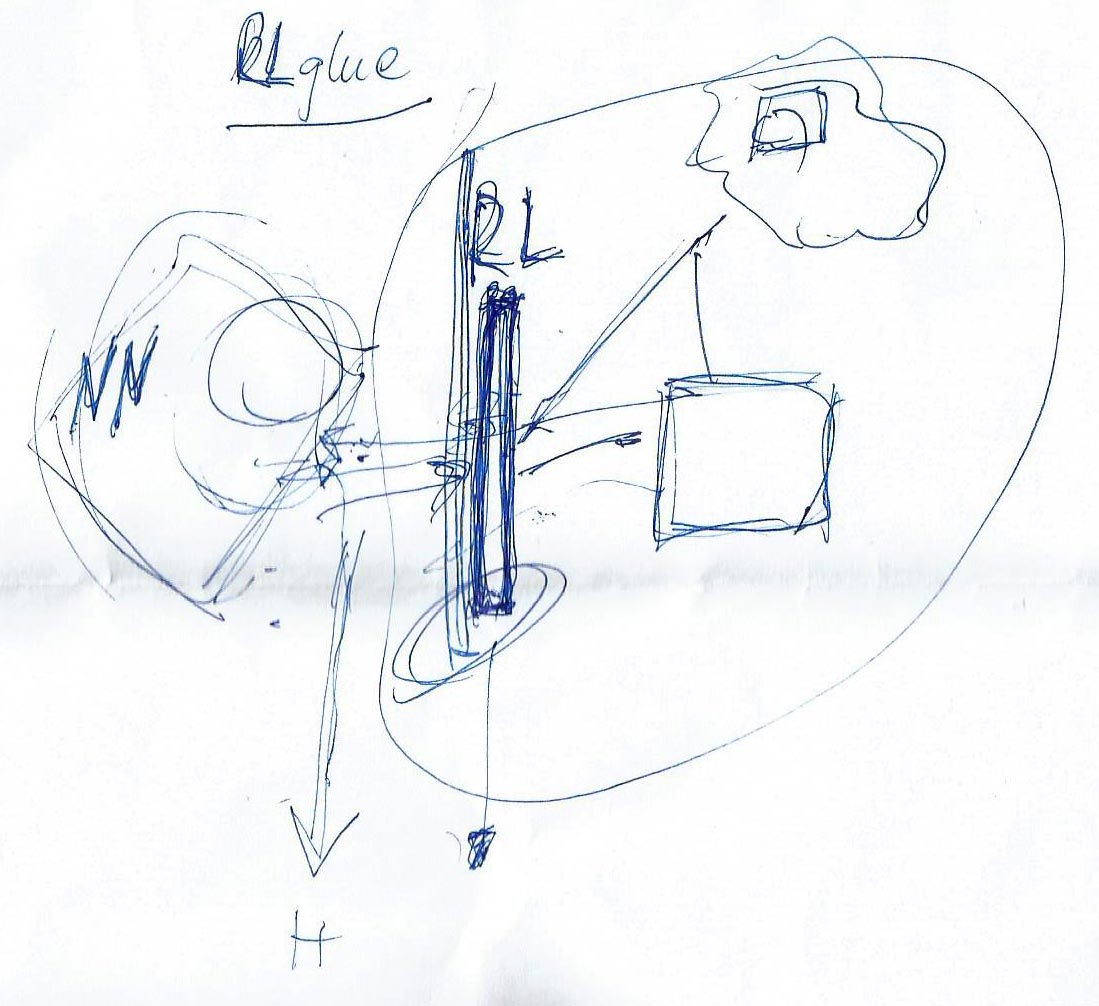 RLglue
RL
NN
H